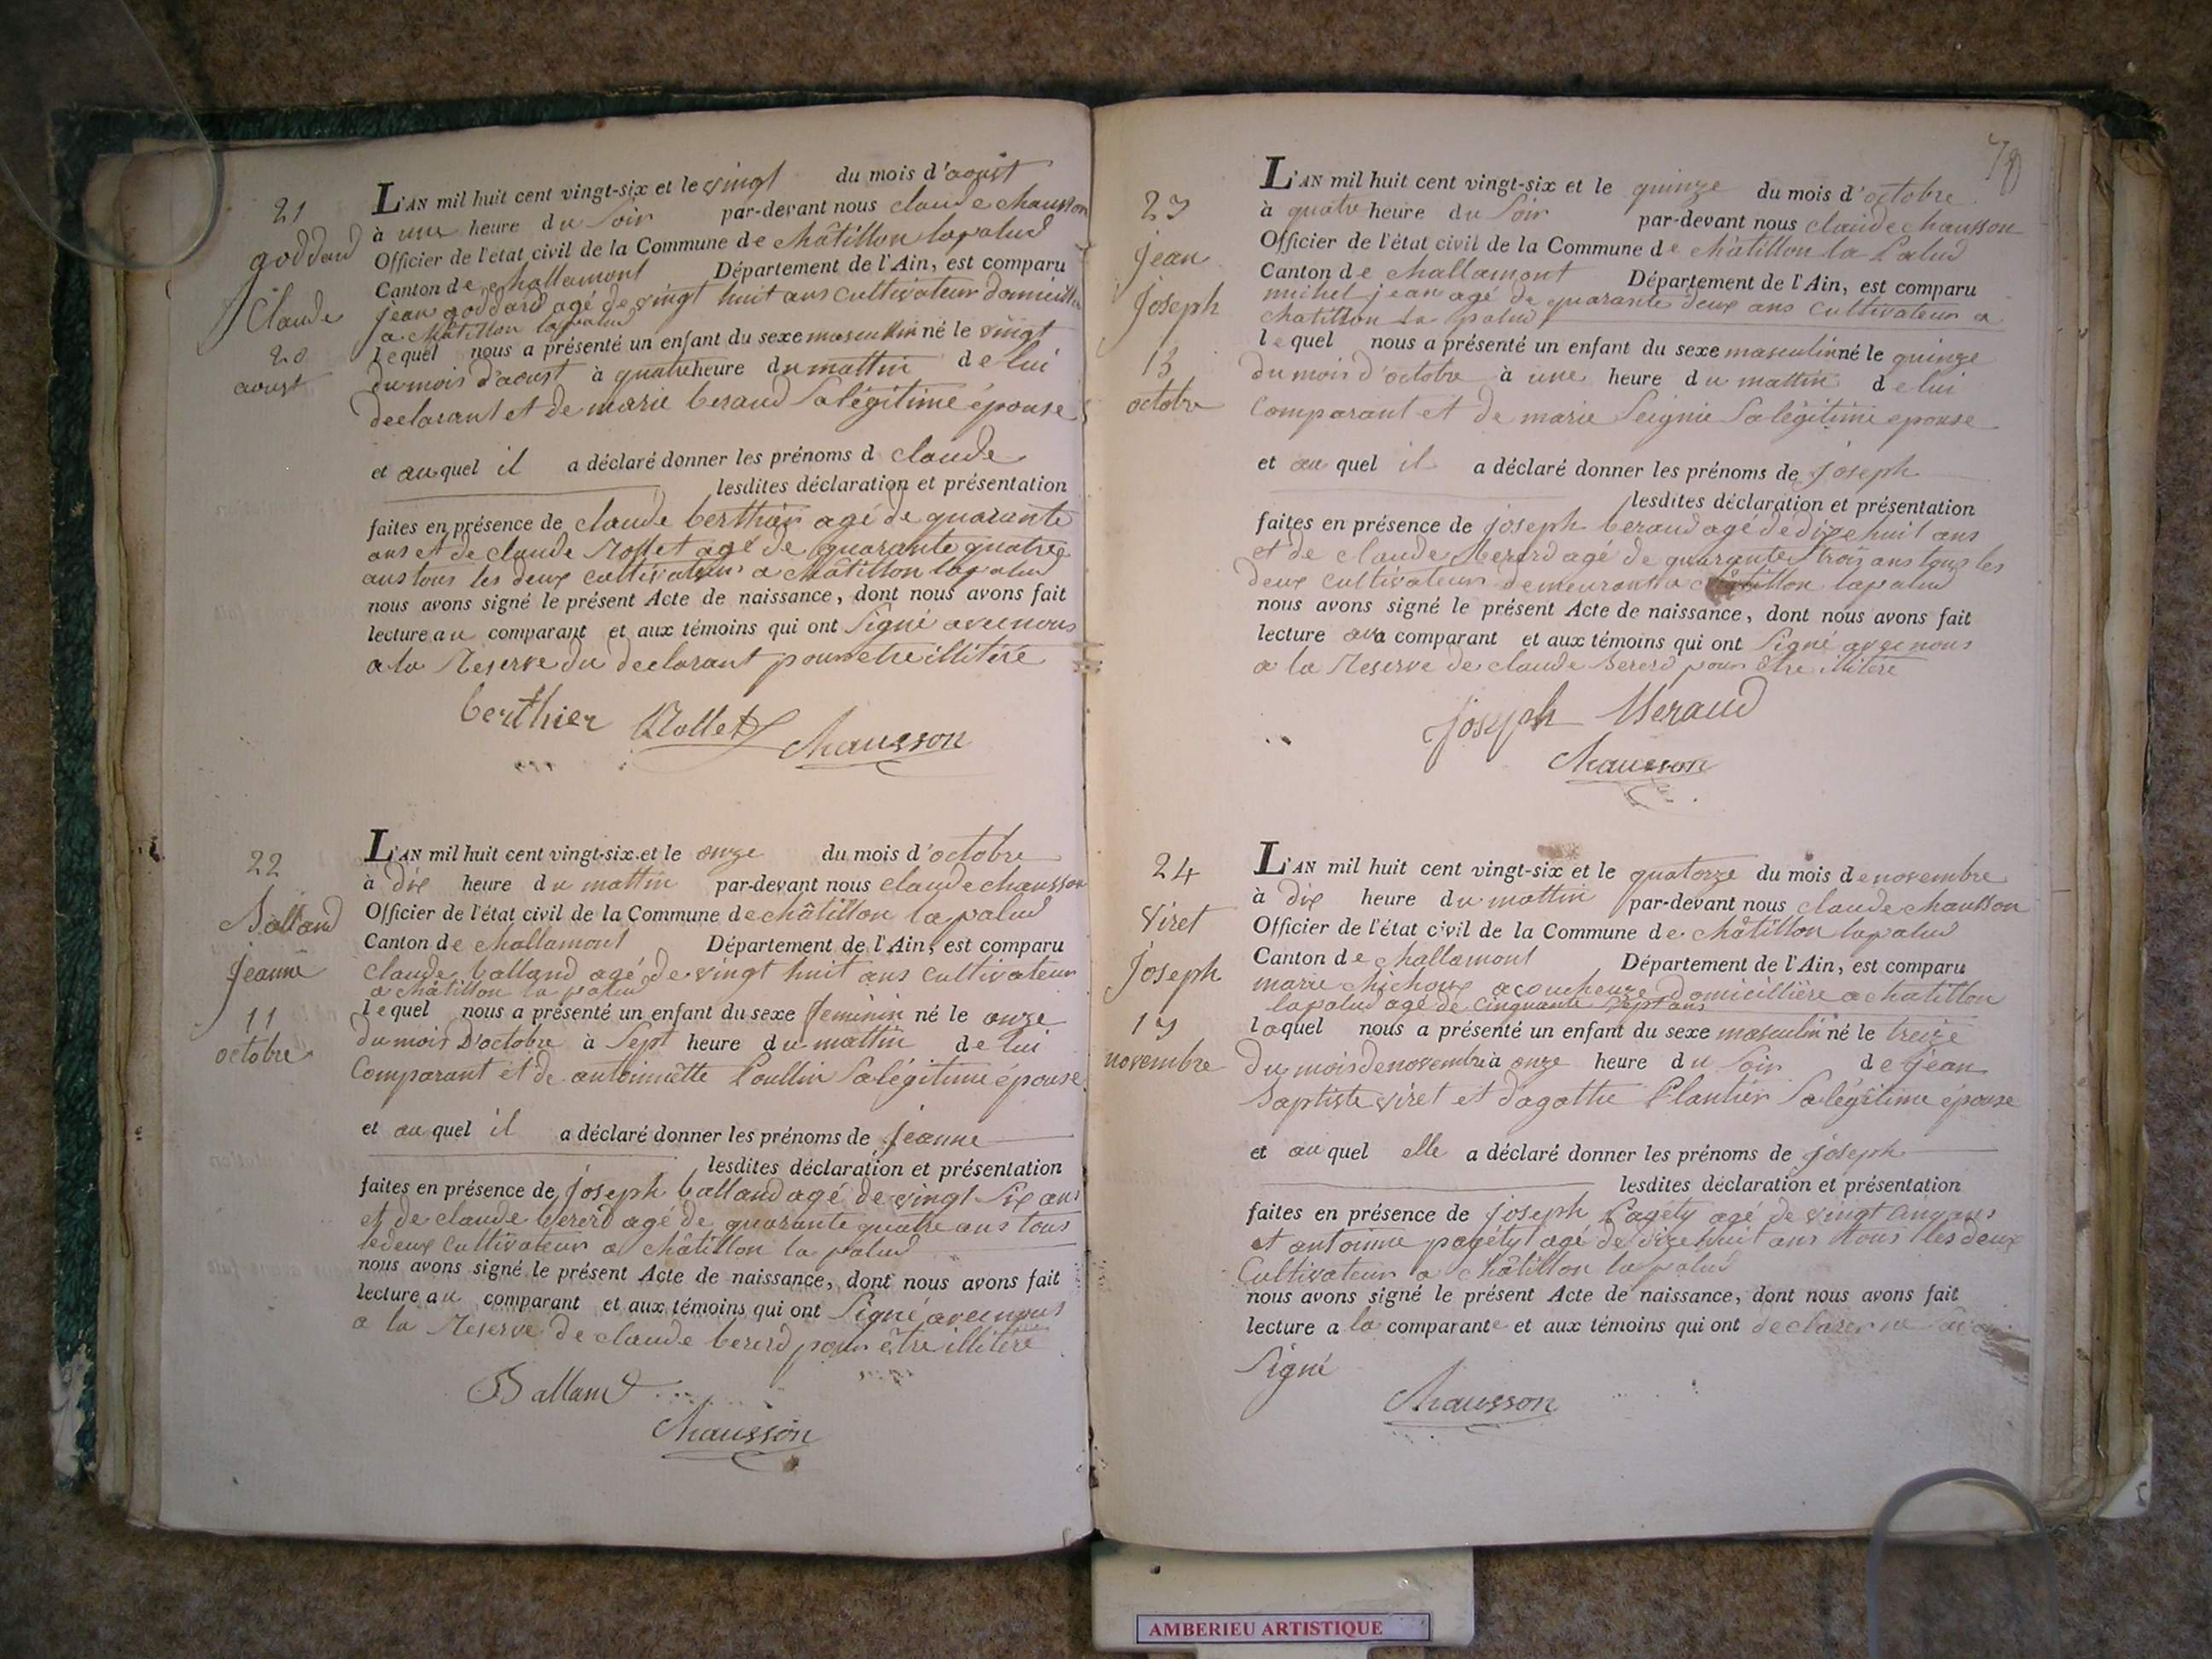 21
goddard
Claude
20
aoust
L'AN mil huit cent vingt-six et le vingt du mois d'aoust
à une heure du soir par-devant nous claude chausson
Officier de l'état civil de la Commune de châtillon lapalud
Canton de challamont Département de l'Ain, est comparu
jean goddard agé de vingt huit ans cultivateur
a châtillon lapalud
lequel nous a présenté un enfant du sexe masculin né le vingt
du mois d'aoust à quatre heure du mattin de lui
declarant et de marie beraud sa légitime épouse
et auquel il a déclaré donner les prénoms d claude
lesdites déclaration et présentation
faites en présence de claude berthier agé de quarante
ans et de claude Rollet agé de quarante quatre
ans tous les deux cultivateurs a châtillon lapalud
nous avons signé le présent Acte de naissance, dont nous avons fait
lecture au comparant et aux témoins qui ont signé avec nous
a la Reserve du declarant pour etre illitéré
berthier Rollet
Chausson
22
Balland
jeanne
11
octobre
L'AN mil huit cent vingt-six et le onze du mois d'octobre
à dix heure du mattin par-devant nous claude chausson
Officier de l'état civil de la Commune de châtillon la palud
Canton de challamont Département de l'Ain, est comparu
claude balland agé de vingt huit ans cultivateur
a châtillon la palud
lequel nous a présenté un enfant du sexe feminin né le onze
du mois D'octobre à sept heure du mattin de lui
comparant et de antoinette Poullin sa légitime épouse
et au quel il a déclaré donner les prénoms de jeanne
lesdites déclaration et présentation
faites en présence de joseph balland agé de vingt six ans
et de claude bererd agé de quarante quatre ans tous
ledeux cultivateur a châtillon la palud
nous avons signé le présent Acte de naissance, dont nous avons fait
lecture au comparant et aux témoins qui ont signé avec nous
a la Reserve de claude bererd pour être illitéré
Balland
Chausson
78
23
jean
joseph
15
octobre
L'AN mil huit cent vingt-six et le quinze du mois d'octobre
à quatre heure du soir par-devant nous claude chausson
Officier de l'état civil de la Commune de châtillon la Palud
Canton de challamont Département de l'Ain, est comparu
michel jean agé de quarante deux ans cultivateur a
chatillon la palud
lequel nous a présenté un enfant du sexe masculin né le quinze
du mois d'octobre à une heure du mattin de lui
comparant et de marie Seignie sa légitime epouse
et au quel il a déclaré donner les prénoms de joseph
lesdites déclaration et présentation
faites en présence de joseph beraud agé de dixe huit ans
et de claude bererd agé de quarante trois ans tous les
deux cultivateur demeurant a châtillon lapalud
nous avons signé le présent Acte de naissance, dont nous avons fait
lecture au comparant et aux témoins qui ont signé avec nous
a la Reserve de claude bererd pour être illitéré
joseph Beraud
Chausson
24
Viret
joseph
13
novembre
L'AN mil huit cent vingt-six et le quatorze du mois de novembre
à dix heure du mattin par-devant nous claude chausson
Officier de l'état civil de la Commune de châtillon lapalud
Canton de challamont Département de l'Ain, est comparu
marie chichoux acoucheuze domicillière a chatillon
lapalud agé de cinquante sept ans
laquel nous a présenté un enfant du sexe masculin né le treize
du mois de novembre à onze heure du soir de jean
Baptiste viret et d'agathe Plantier sa légitime épouse
et au quel elle a déclaré donner les prénoms de joseph
lesdites déclaration et présentation
faites en présence de joseph Pagéty agé de vingt ans
et antoinne pagétyt agé de dixe huit ans tous les deux
cultivateur a châtillon lapalud
nous avons signé le présent Acte de naissance, dont nous avons fait
lecture a la comparante et aux témoins qui ont declarer ne
signé
Chausson
AMBERIEU ARTISTIQUE